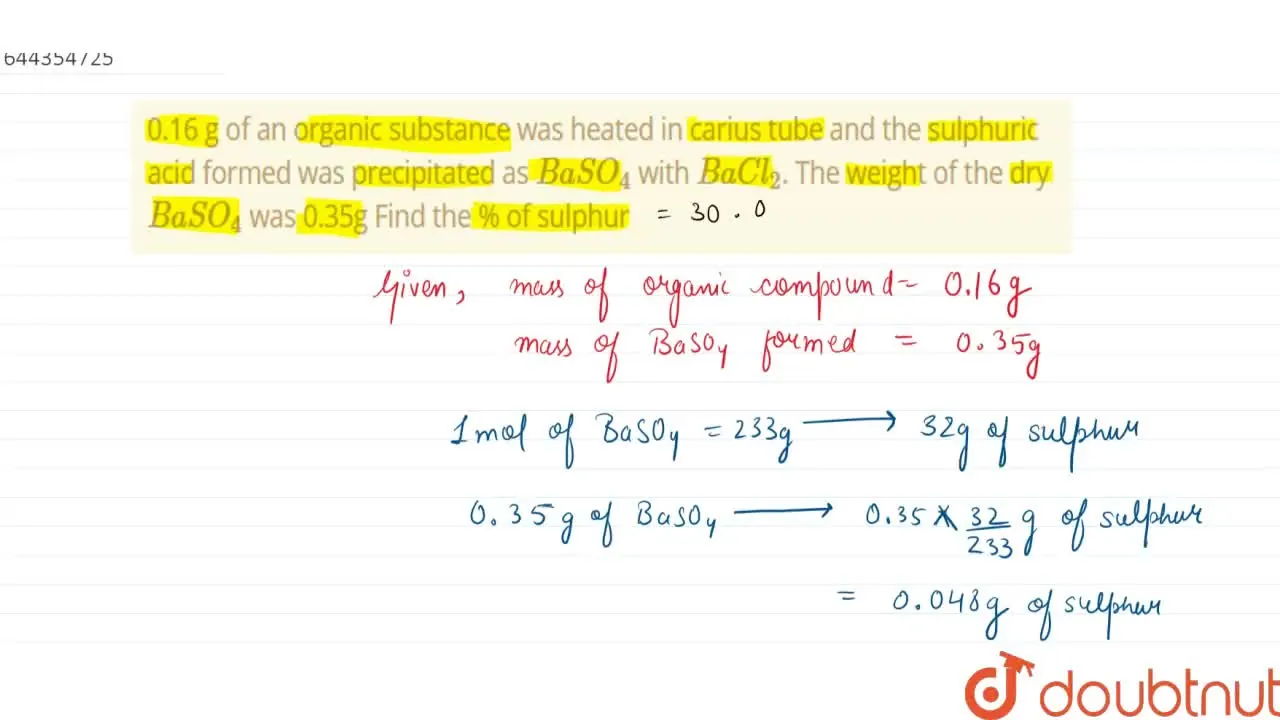 644354725
0.16 g of an organic substance was heated in carius tube and the sulphuric
acid formed was precipitated as BaSO₄ with BaCl₂. The weight of the dry
BaSO₄ was 0.35g Find the % of sulphur = 30.0
Given, mass of organic compound = 0.16g
mass of BaSO₄ formed = 0.35g
1 mol of BaSO₄ = 233g ⟶ 32g of sulphur
0.35g of BaSO₄ ⟶ 0.35 × 32/233 g of sulphur
= 0.048g of sulphur
doubtnut